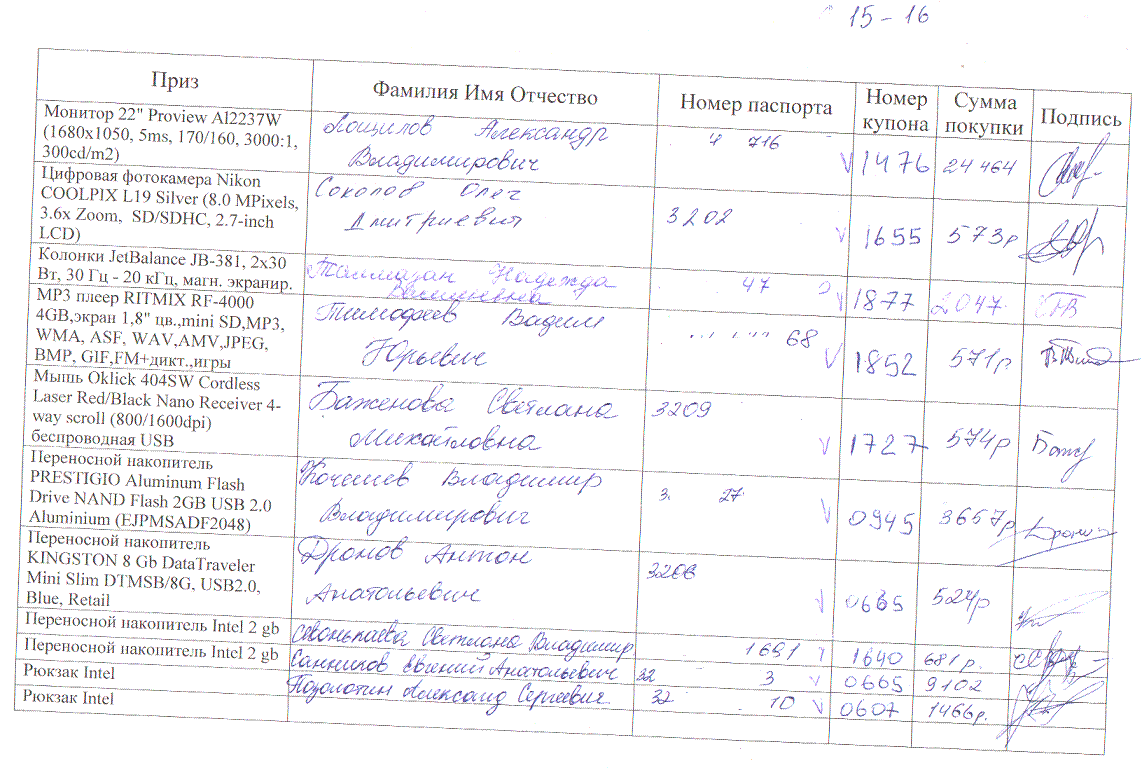 15-16
Приз Фамилия Имя Отчество Номер паспорта Номер купона Сумма покупки Подпись
Монитор 22" Proview Al2237W
(1680x1050, 5ms, 170/160, 3000:1,
300cd/m2)
Лощилов Александр
Владимирович
716
1476
24464
Цифровая фотокамера Nikon
COOLPIX L19 Silver (8.0 MPixels,
3.6x Zoom, SD/SDHC, 2.7-inch
LCD)
Соколов Олег
Дмитриевич
3202
1655
573р
Колонки JetBalance JB-381, 2x30
Вт, 30 Гц - 20 кГц, магн. экранир.
Надежда
47
1877
2047
MP3 плеер RITMIX RF-4000
4GB,экран 1,8" цв.,mini SD,MP3,
WMA, ASF, WAV,AMV,JPEG,
BMP, GIF,FM+дикт.,игры
Тимофеев Вадим
Юрьевич
68
1852
571р
Мышь Oklick 404SW Cordless
Laser Red/Black Nano Receiver 4-
way scroll (800/1600dpi)
беспроводная USB
Баженова Светлана
Михайловна
3209
1727
574р
Переносной накопитель
PRESTIGIO Aluminum Flash
Drive NAND Flash 2GB USB 2.0
Aluminium (EJPMSADF2048)
Владимир
Владимирович
3
27
0945
3657р
Переносной накопитель
KINGSTON 8 Gb DataTraveler
Mini Slim DTMSB/8G, USB2.0,
Blue, Retail
Дронов Антон
Анатольевич
3208
0665
524р
Переносной накопитель Intel 2 gb
Переносной накопитель Intel 2 gb
Светлана Владимир
1691
1640
681р.
Рюкзак Intel
Санников Евгений Анатольевич
32
3
0665
9102
Рюкзак Intel
Позолотин Александ Сергеевич
32
10
0607
1466р.